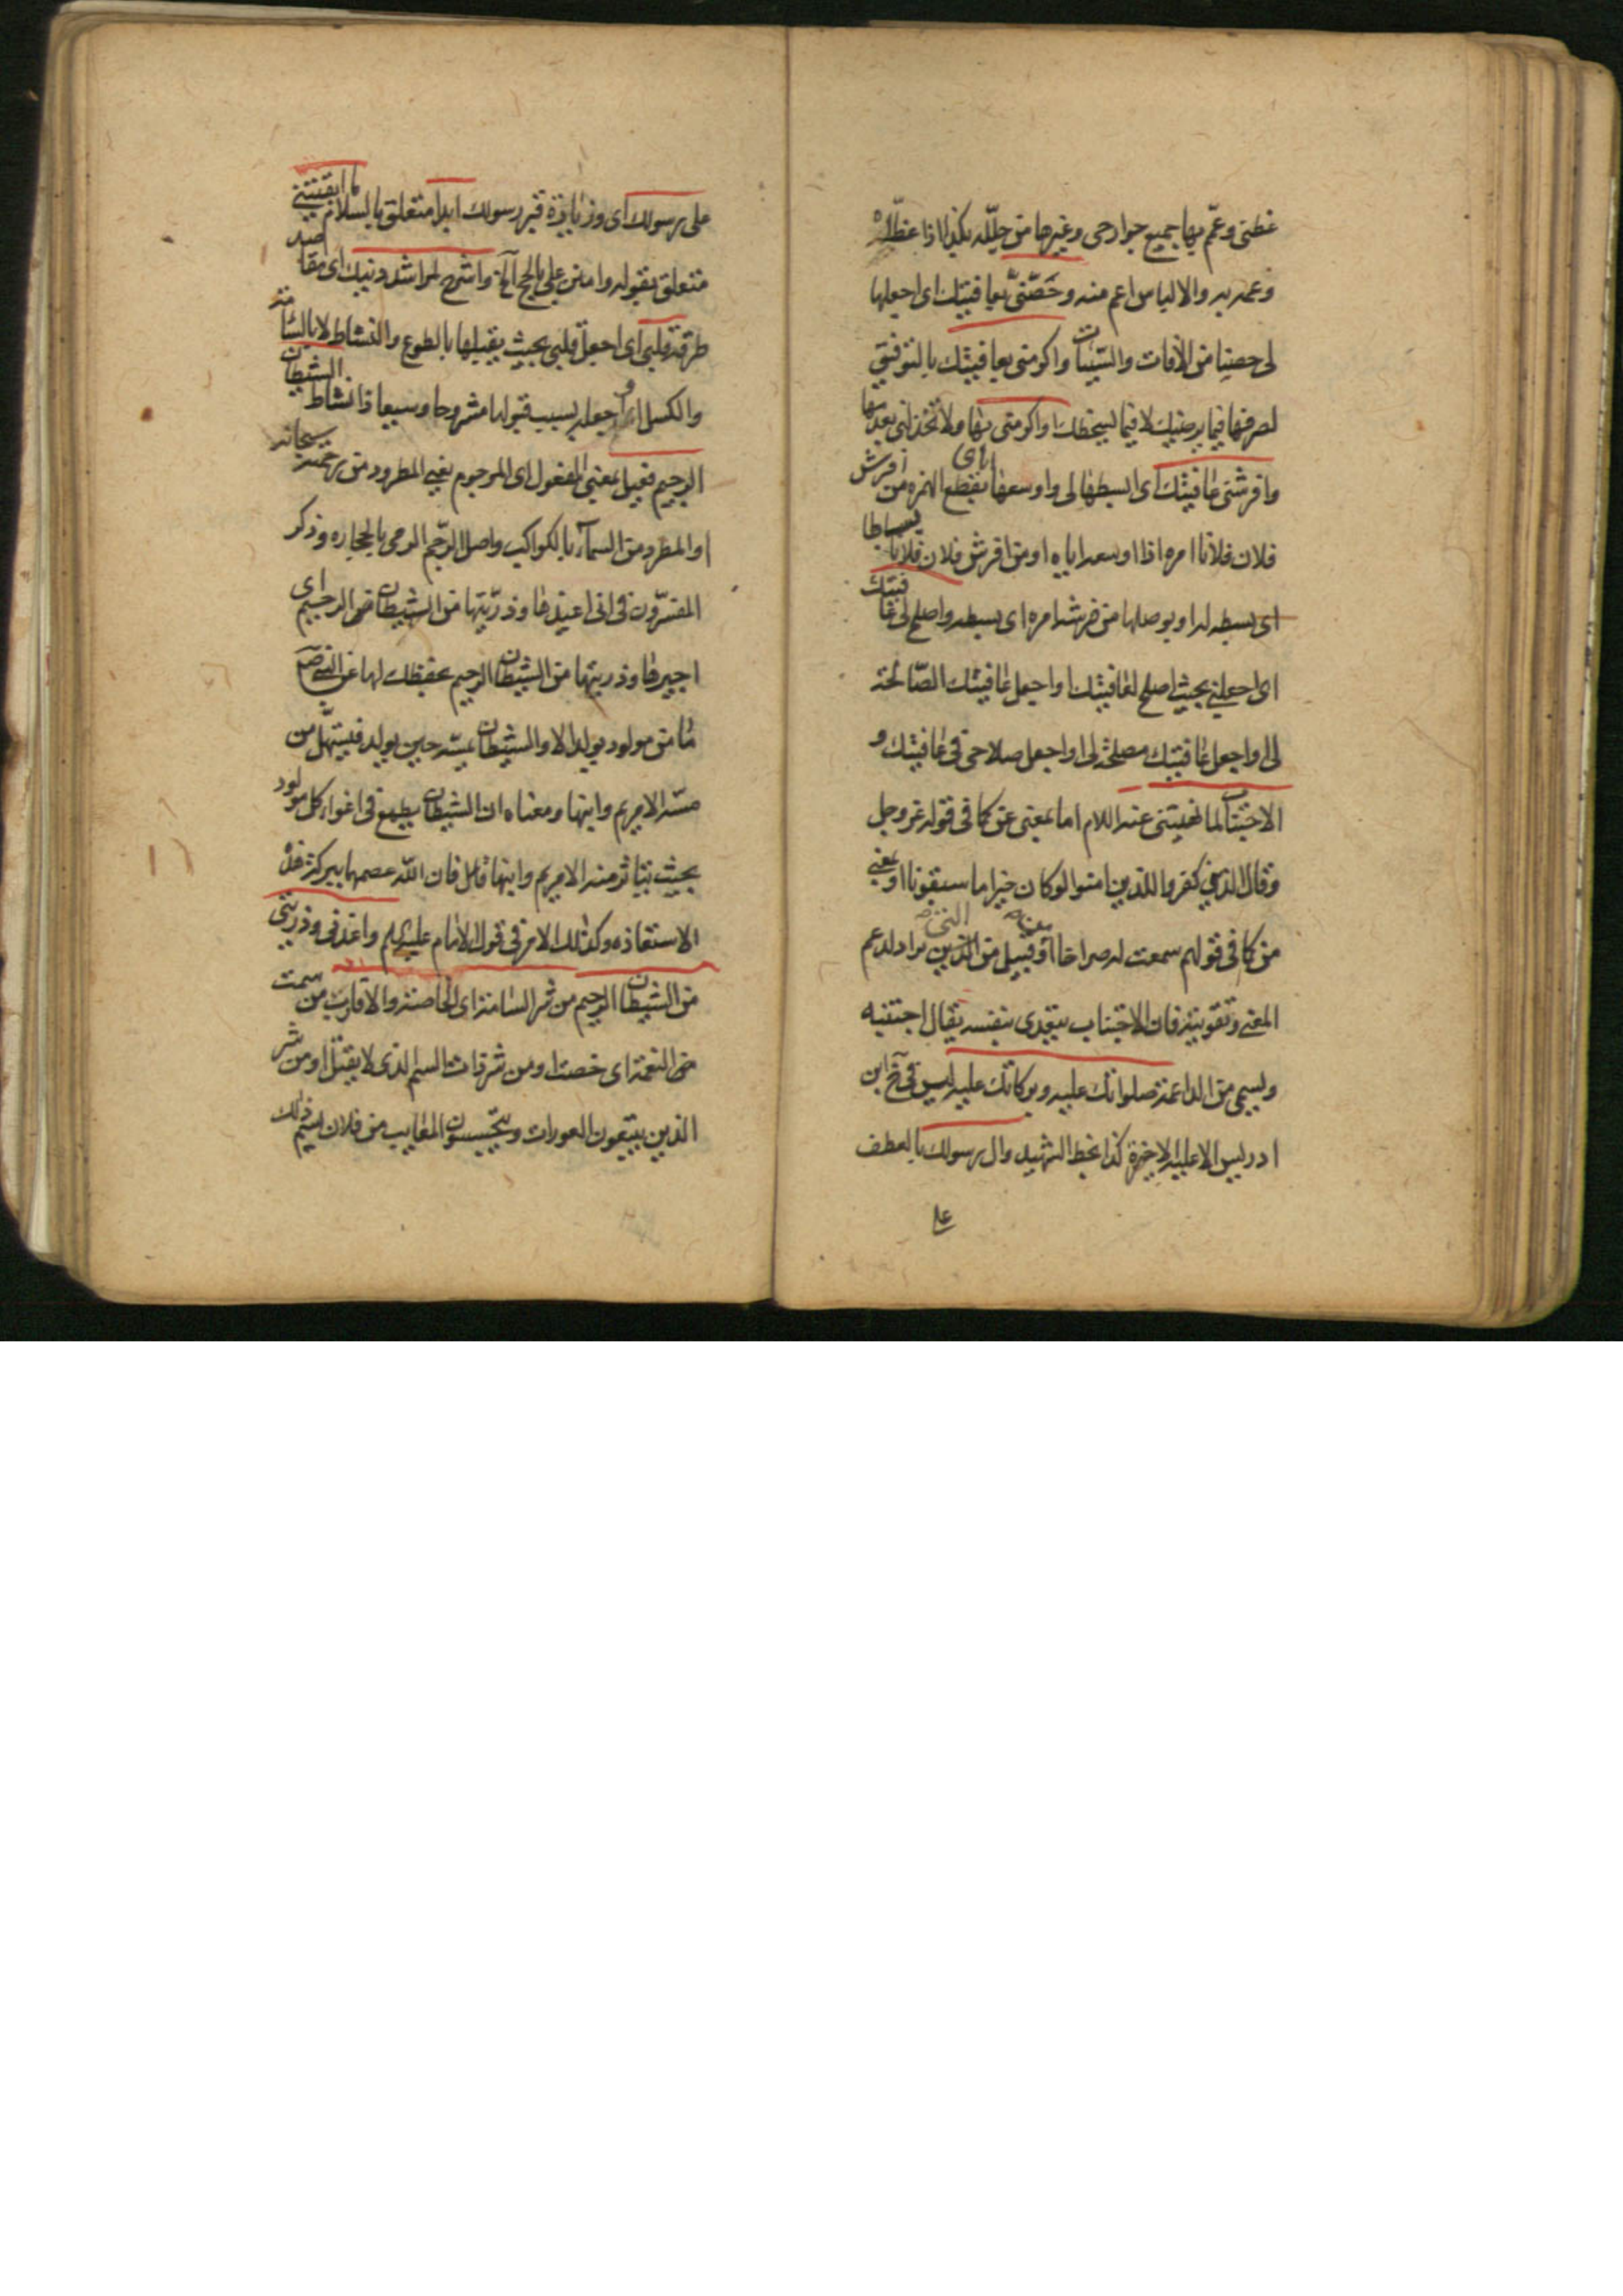 غطنى وعمّ بها جميع جوارحى وغيرها من جلّله بكذا اذا غطّاه
وعمه به والالباس اعم منه وحَصّنّى بعافيتك اى اجعلها
لى حصنا من الآفات والسّيئات واكرمنى بعافيتك بالتوفيق
لصرفها فيما يرضيك لا فيما يسخطك او اكرمنى بها ولا تخذلنى بعد
وافرشنى عافيتك اى ابسطها لى واوسعها بقطع الهمزه من افرش
فلان فلانا امره اذا اوسعه اياه او من افرش فلان فلانا بساطا
اى بسطه له او بوصلها من فرشه امره اى بسطه واصلح لى عافيتك
اى اجعلنى بحيث اصلح لعافيتك او اجعل عافيتك الصّالحة
لى او اجعل عافيتك مصلحة لى او اجعل صلاحى فى عافيتك و
الاجتناب لما نهيتنى عنه اللام اما بمعنى عن كما فى قوله عز وجل
وقال الذين كفروا للذين امنوا لو كان خيرا ما سبقونا او بمعنى
من كما فى قولهم سمعت له صراخا او قبيل من الذين يزاد لدعم
المعنى وتقويته فان الاجتناب يتعدى بنفسه يقال اجتنبه
صلواتك عليه وبركاتك عليه ليس فى نخ ابن
ادريس الا عليه الاخيرة كذا بخط الشهيد وال رسولك بالعطف
على رسولك اى وزيارة قبر رسولك ابدا متعلق بالسلام ما ابقيتنى
متعلق بقوله وامنن على بالحج الخ واشرح لمراشد دينك اى مقاصد
طرقه قلبى اى اجعل قلبى بحيث يقبلها بالطوع والنشاط لا بالسّامة
والكسل او اجعله بسبب قبولها مشروحا وسيعا ذا نشاط الشيطان
الرجيم فعيل بمعنى المفعول اى المرجوم يعنى المطرود من رحمته سبحانه
او المطرود من السماء بالكواكب واصل الرّجم الرمى بالحجاره وذكر
المفسّرون فى انى اعيذها وذرّيتها من الشيطان الرجيم اى
اجيرها وذريتها من الشيطان الرجيم بحفظك لها عن النبى صم
ما من مولود يولد الا والشيطان يمسّه حين يولد فيستهلّ من
مسّه الا مريم وابنها ومعناه ان الشيطان يطمع فى اغواء كل مولود
بحيث يتاثر منه الا مريم وابنها قيل فان اللّه عصمهما ببركة هذه
الاستعاذه وكذلك الامر فى قول الامام عليه السلم واعذنى وذريتى
من الشيطان الرجيم من شر السامة اى الخاصة والاقارب من سمت
النعمة اى خصت او من شر ذات السم الذى لا يقتل او من شر
الذين يتتبعون العورات ويتجسسون المعايب من فلان ليسم ذلك